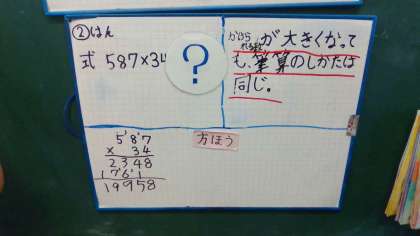 ②はん
式 587×34
?
かけられる数が大きくなって
も、筆算のしかたは
同じ。
方ほう
587
× 34
2348
1761
19958